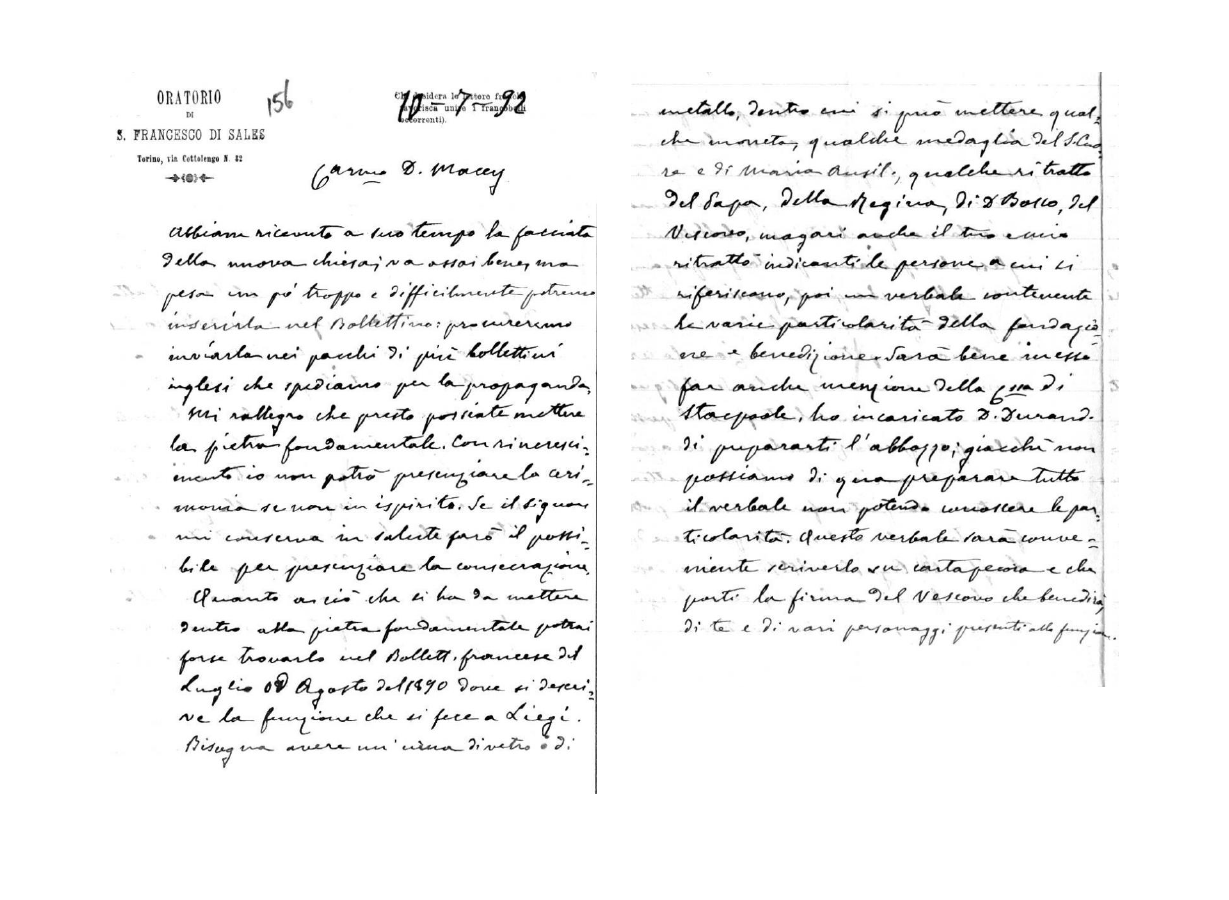 ORATORIO
DI
S. FRANCESCO DI SALES
Torino, via Cottolengo N. 32
156
Chi desidera le lettere
favorisca unire i francobolli
occorrenti).
10-7-92
Carmo D. Macey
Abbiam ricevuto a suo tempo la facciata
della nuova chiesa; va assai bene, ma
pesa un pò troppo e difficilmente potremo
inserirla nel Bollettino: procureremo
inviarla nei pacchi di più bollettini
inglesi che spediamo per la propaganda,
Mi rallegro che presto possiate mettere
la pietra fondamentale. Con rincresci-
mento io non potrò presenziare la ceri-
monia se non in ispirito. Se il Signore
mi conserva in salute farò il possi-
bile per presenziare la consecrazione.
Quanto a ciò che si ha da mettere
dentro alla pietra fondamentale potrai
forse trovarlo nel Bollett. francese del
Luglio od Agosto del 1890 dove si descri-
ve la funzione che si fece a Liegi.
Bisogna avere un' urna di vetro o di
metallo, dentro cui si può mettere qual-
che moneta, qualche medaglia del S. Cuo-
re e di Maria Ausil., qualche ritratto
del Papa, della Regina, di D Bosco, del
Vescovo, magari anche il tuo e mio
ritratto indicanti le persone a cui si
riferiscono, poi un verbale contenente
le varie particolarità della fondazio-
ne e benedizione. Sarà bene in esso
far anche menzione della Cssa di
Stacpoole, ho incaricato D. Durand
di prepararti l'abbozzo; giacchè non
possiamo di qua preparare tutto
il verbale non potendo conoscere le par-
ticolarità. Questo verbale sarà conve-
niente scriverlo su cartapecora e che
porti la firma del Vescovo che benedirà,
di te e di vari personaggi presenti alla funzion.